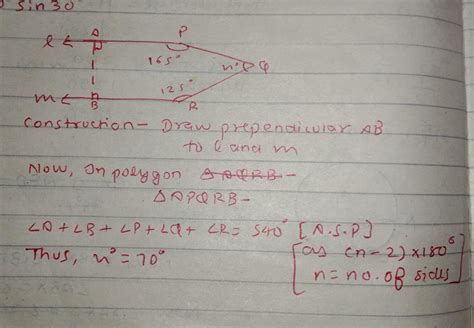 sin30
A P
l
165°
n° Q
125°
m
B R
Construction- Draw prependicular AB
to l and m
Now, In polygon
△APQRB-
∠A + ∠B + ∠P + ∠Q + ∠R = 540° [A.S.P]
Thus, n° = 70°
[as (n-2) x 180°
n = no. of sides]